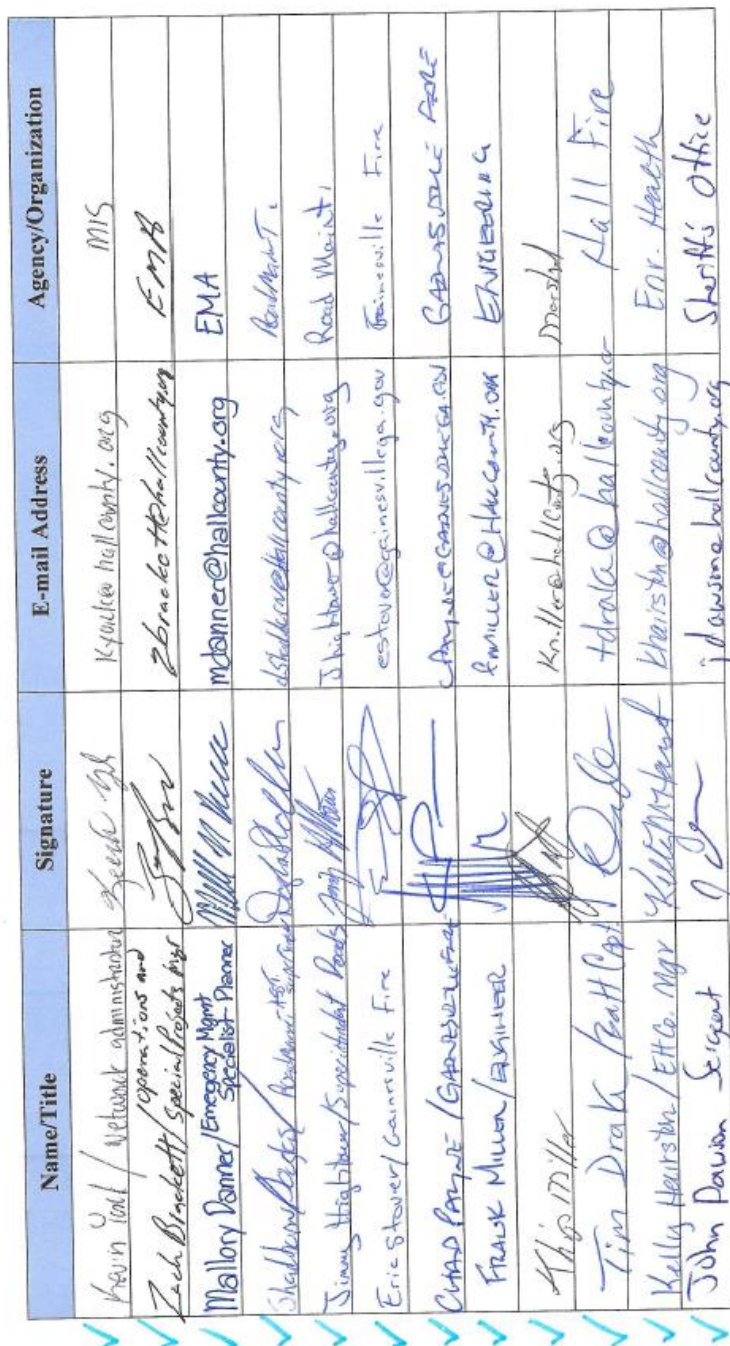 Name/Title Signature E-mail Address Agency/Organization
Kevin / Network administrator hallcounty.org MIS
Zach Brackett / Operations and Special Projects Mgr zbrackett@hallcounty.org EMA
Mallory Danner / Emergency Mgmt Specialist Planner mdanner@hallcounty.org EMA
Road Maint.
Jimmy Hightower / Superintendent Roads Jhightower@hallcounty.org Road Maint.
Eric Stover / Gainesville Fire estover@gainesvillega.gov Gainesville Fire
CHAD PAYNE / CPAYNE@GAINESVILLEGA.GOV GAINESVILLE FIRE
FRANK MILLER / ENGINEER FMILLER@HALLCOUNTY.ORG ENGINEERING
Miller Marshal
Tim Drake / Batt Capt tdrake@hallcounty.o Hall Fire
Kelly Hairston / EH Co. Mgr Khairston@hallcounty.org Env. Health
John Dawson Sergeant hallcounty.org Sheriff's Office